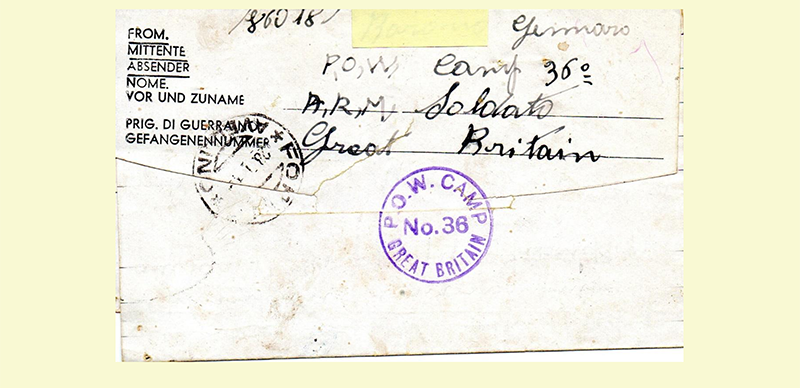 FROM.
MITTENTE
ABSENDER
NOME.
VOR UND ZUNAME
PRIG. DI GUERRA
GEFANGENENNUMMER
Gennaro
P.O.W. Camp 36º
A.R.M. Soldato
Great Britain
P.O.W. CAMP
No.36
GREAT BRITAIN